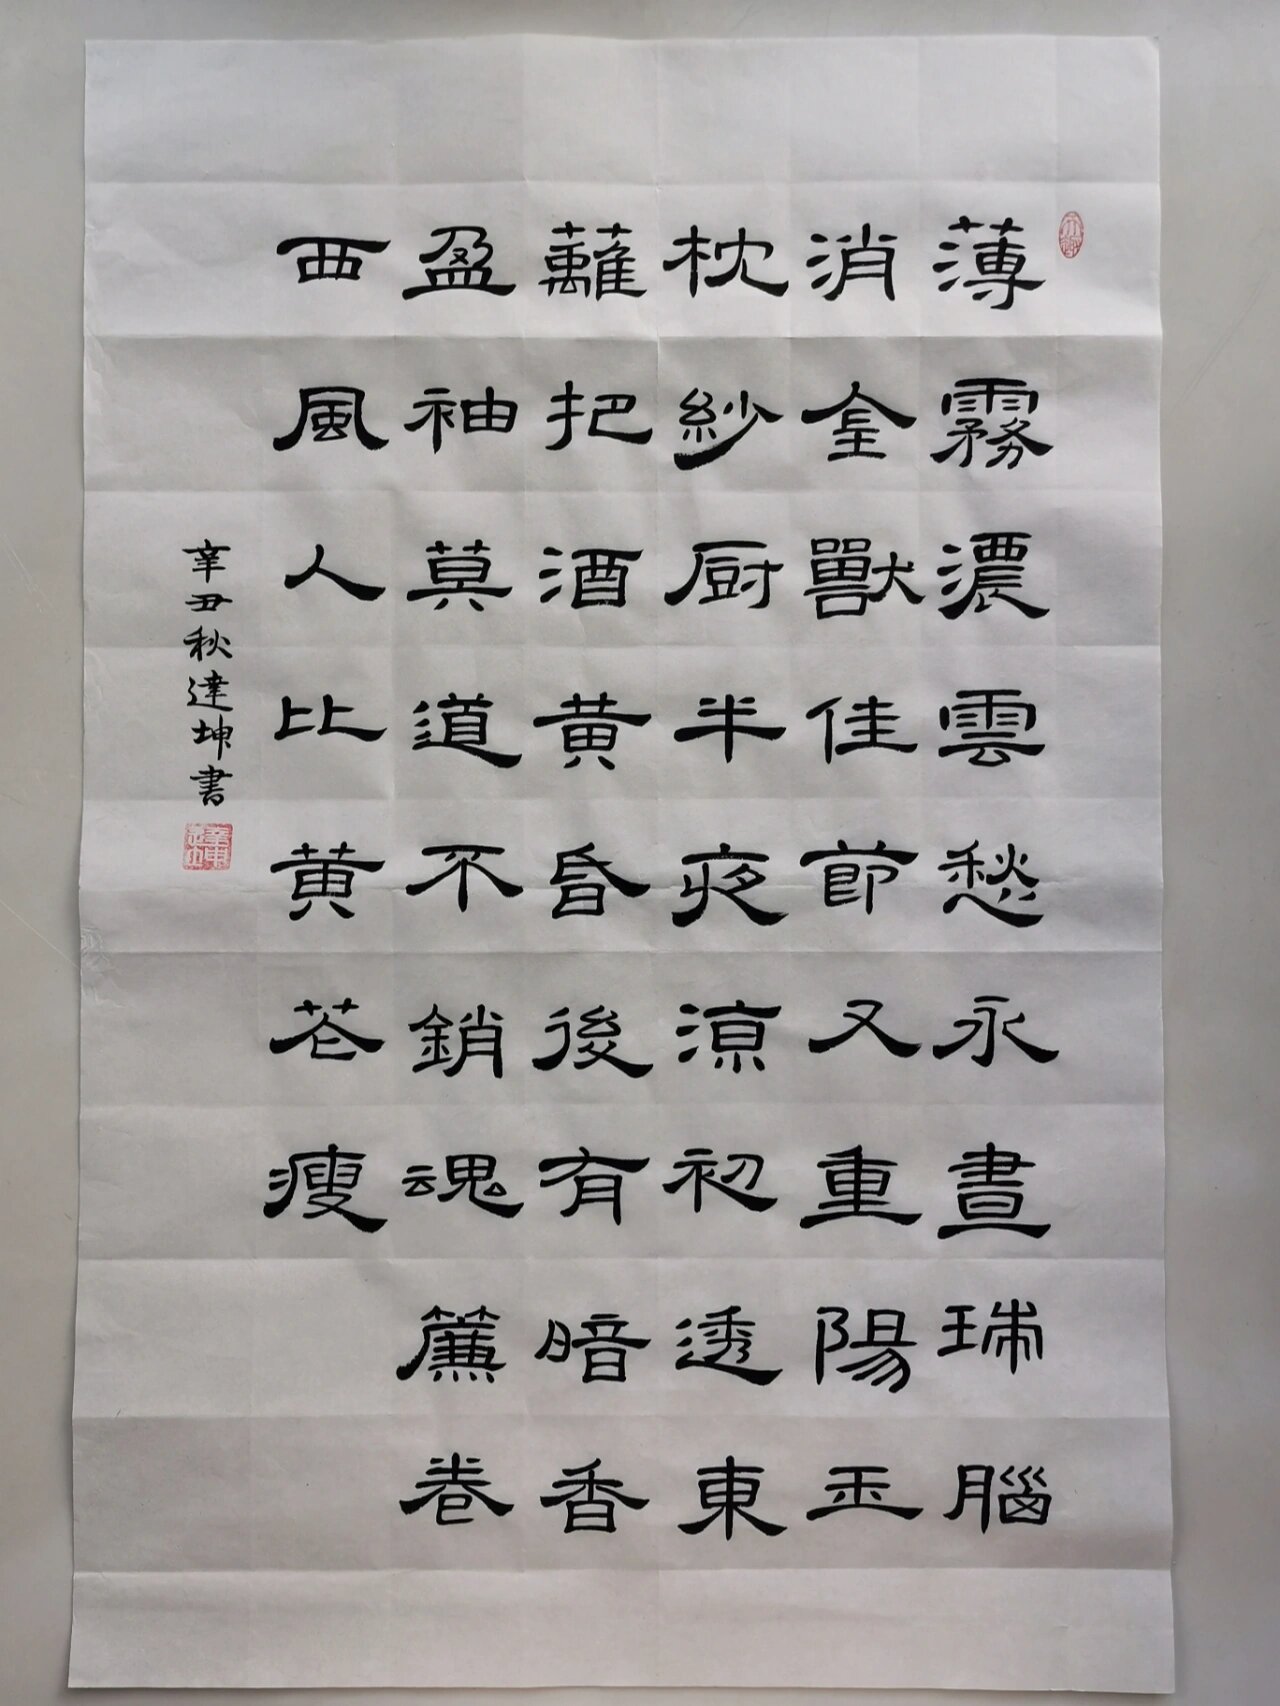 薄霧濃雲愁永晝瑞腦
消金獸佳節又重陽玉
枕紗厨半夜涼初透東
蘺把酒黃昏後有暗香
盈袖莫道不銷魂簾卷
西風人比黃花瘦
辛丑秋達坤書